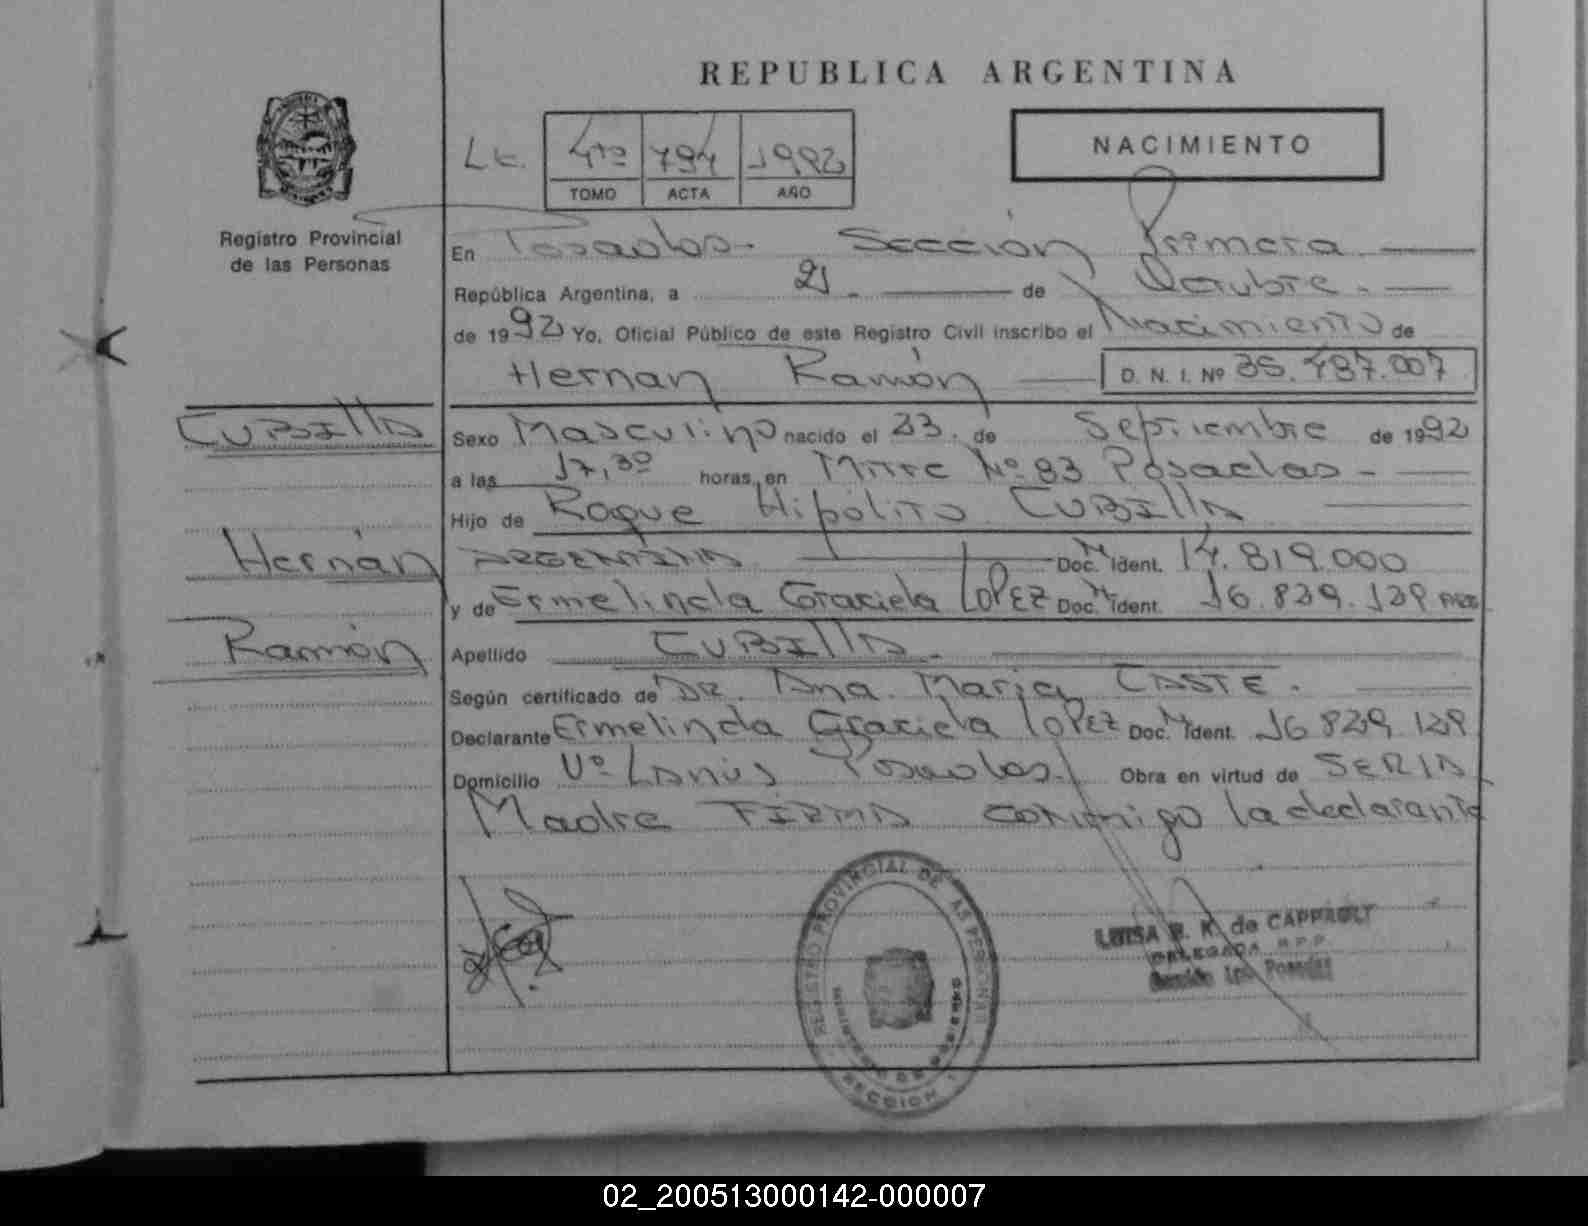 REPUBLICA ARGENTINA
NACIMIENTO
4to 794 1992
TOMO ACTA AÑO
Registro Provincial
de las Personas
En Posadas - Sección Primera
República Argentina, a 21 de Octubre
de 1992 Yo, Oficial Público de este Registro Civil inscribo el Nacimiento de
Hernan Ramón D. N. I. Nº 35.487.007
CUBILLA
Sexo Masculino nacido el 23 de Septiembre de 1992
a las 17,30 horas, en Mitre Nº 83 Posadas -
Hijo de Roque Hipólito CUBILLA
Hernán
ARGENTINA Doc. N Ident. 14.819.000
y de Ermelinda Graciela LOPEZ Doc. N Ident. 16.829.129
Ramón
Apellido CUBILLA.
Según certificado de DR. Ana Maria CASTE.
Declarante Ermelinda Graciela LOPEZ Doc. N Ident. 16.829.129
Domicilio Vº Lanús Posadas. Obra en virtud de SER LA
Madre FIRMA conmigo la declarante
REGISTRO PROVINCIAL DE LAS PERSONAS
MINISTERIO DE GOBIERNO
SECCION 1
LUISA R. K. de CAPPAULT
DELEGADA R.P.P.
Sección 1ra. Posadas
02_200513000142-000007